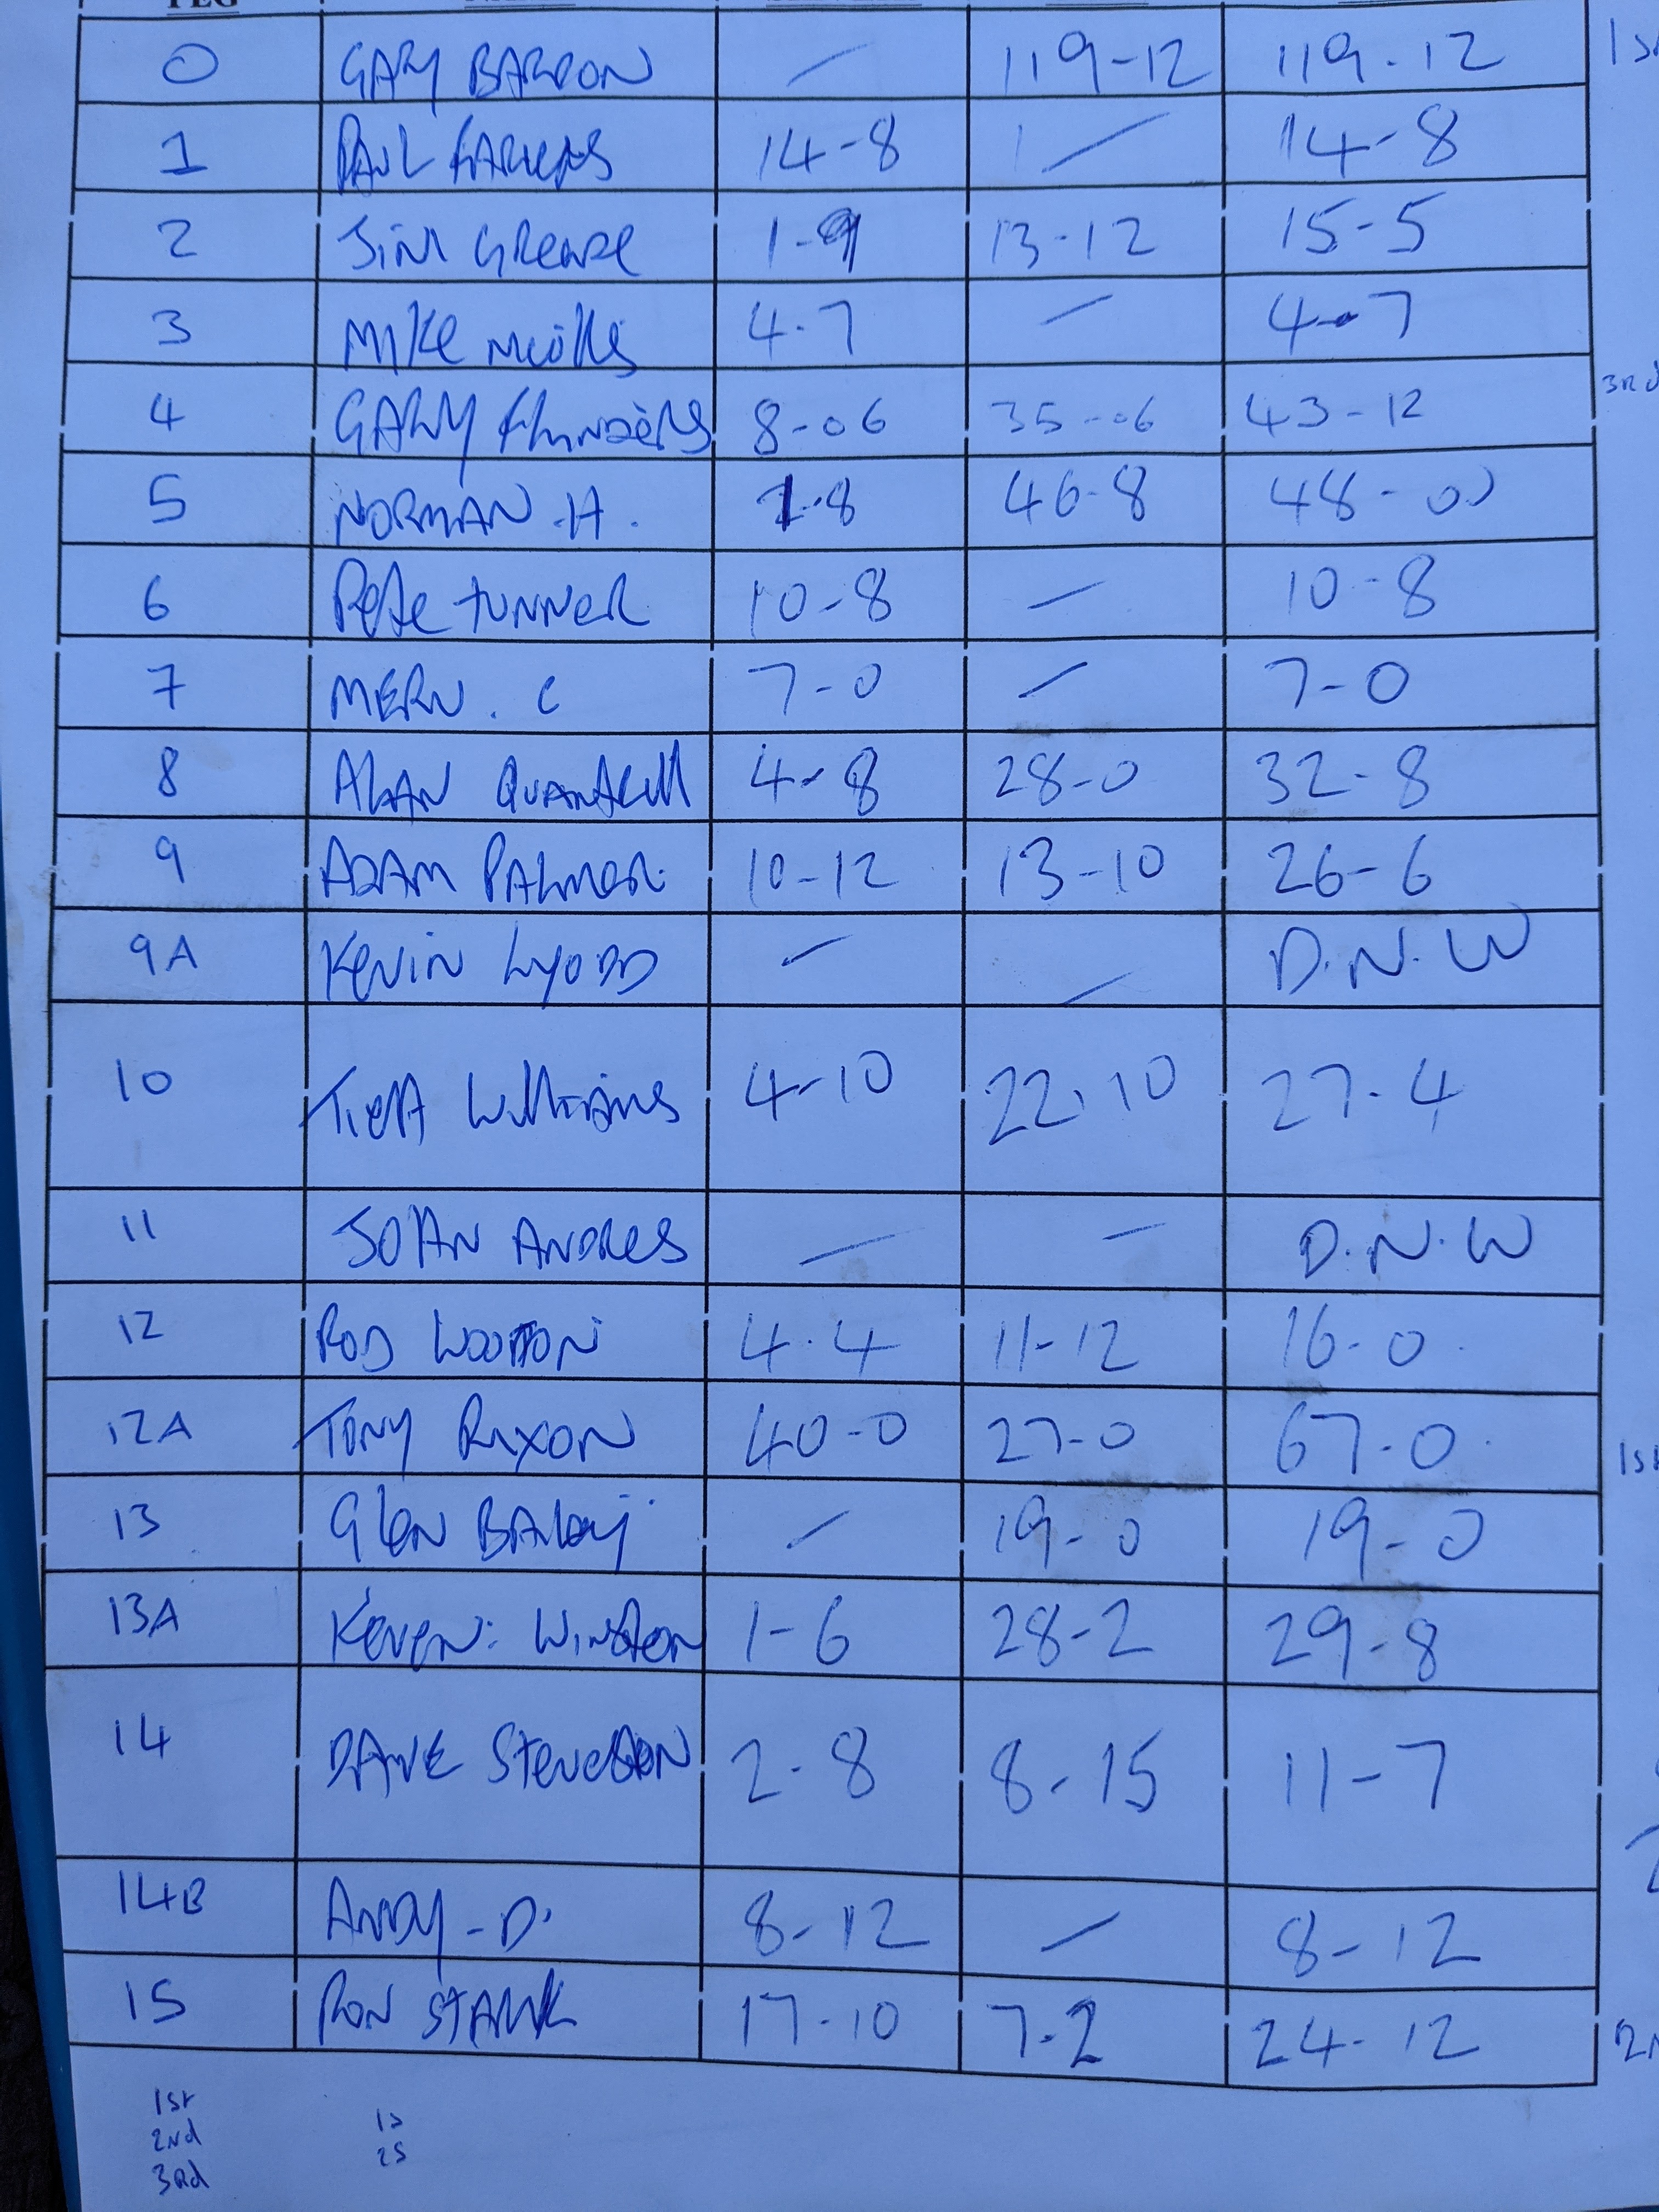 PEG
0 GARY BARRON / 119-12 119-12 1st
1 PAUL 14-8 / 14-8
2 JIM 1-9 13-12 15-5
3 MIKE 4-7 / 4-7
4 GARY 8-06 35-06 43-12 3Rd
5 NORMAN -H. 1-8 46-8 48-0
6 Pete TURNER 10-8 / 10-8
7 MERV. C 7-0 / 7-0
8 ALAN QUANTRILL 4-8 28-0 32-8
9 ADAM PALMER 10-12 13-10 26-6
9A KEVIN / / D.N.W
10 WILLIAMS 4-10 22-10 27-4
11 JOHN ANDREWS / / D.N.W
12 ROD WOOTTON 4-4 11-12 16-0
12A TONY RIXON 40-0 27-0 67-0
13 GLEN BAILEY / 19-0 19-0
13A KEVEN: WINSTON 1-6 28-2 29-8
14 DAVE 2-8 8-15 11-7
14B ANDY-D. 8-12 / 8-12
15 RON STARK 17-10 7-2 24-12
1st
2Nd
3Rd